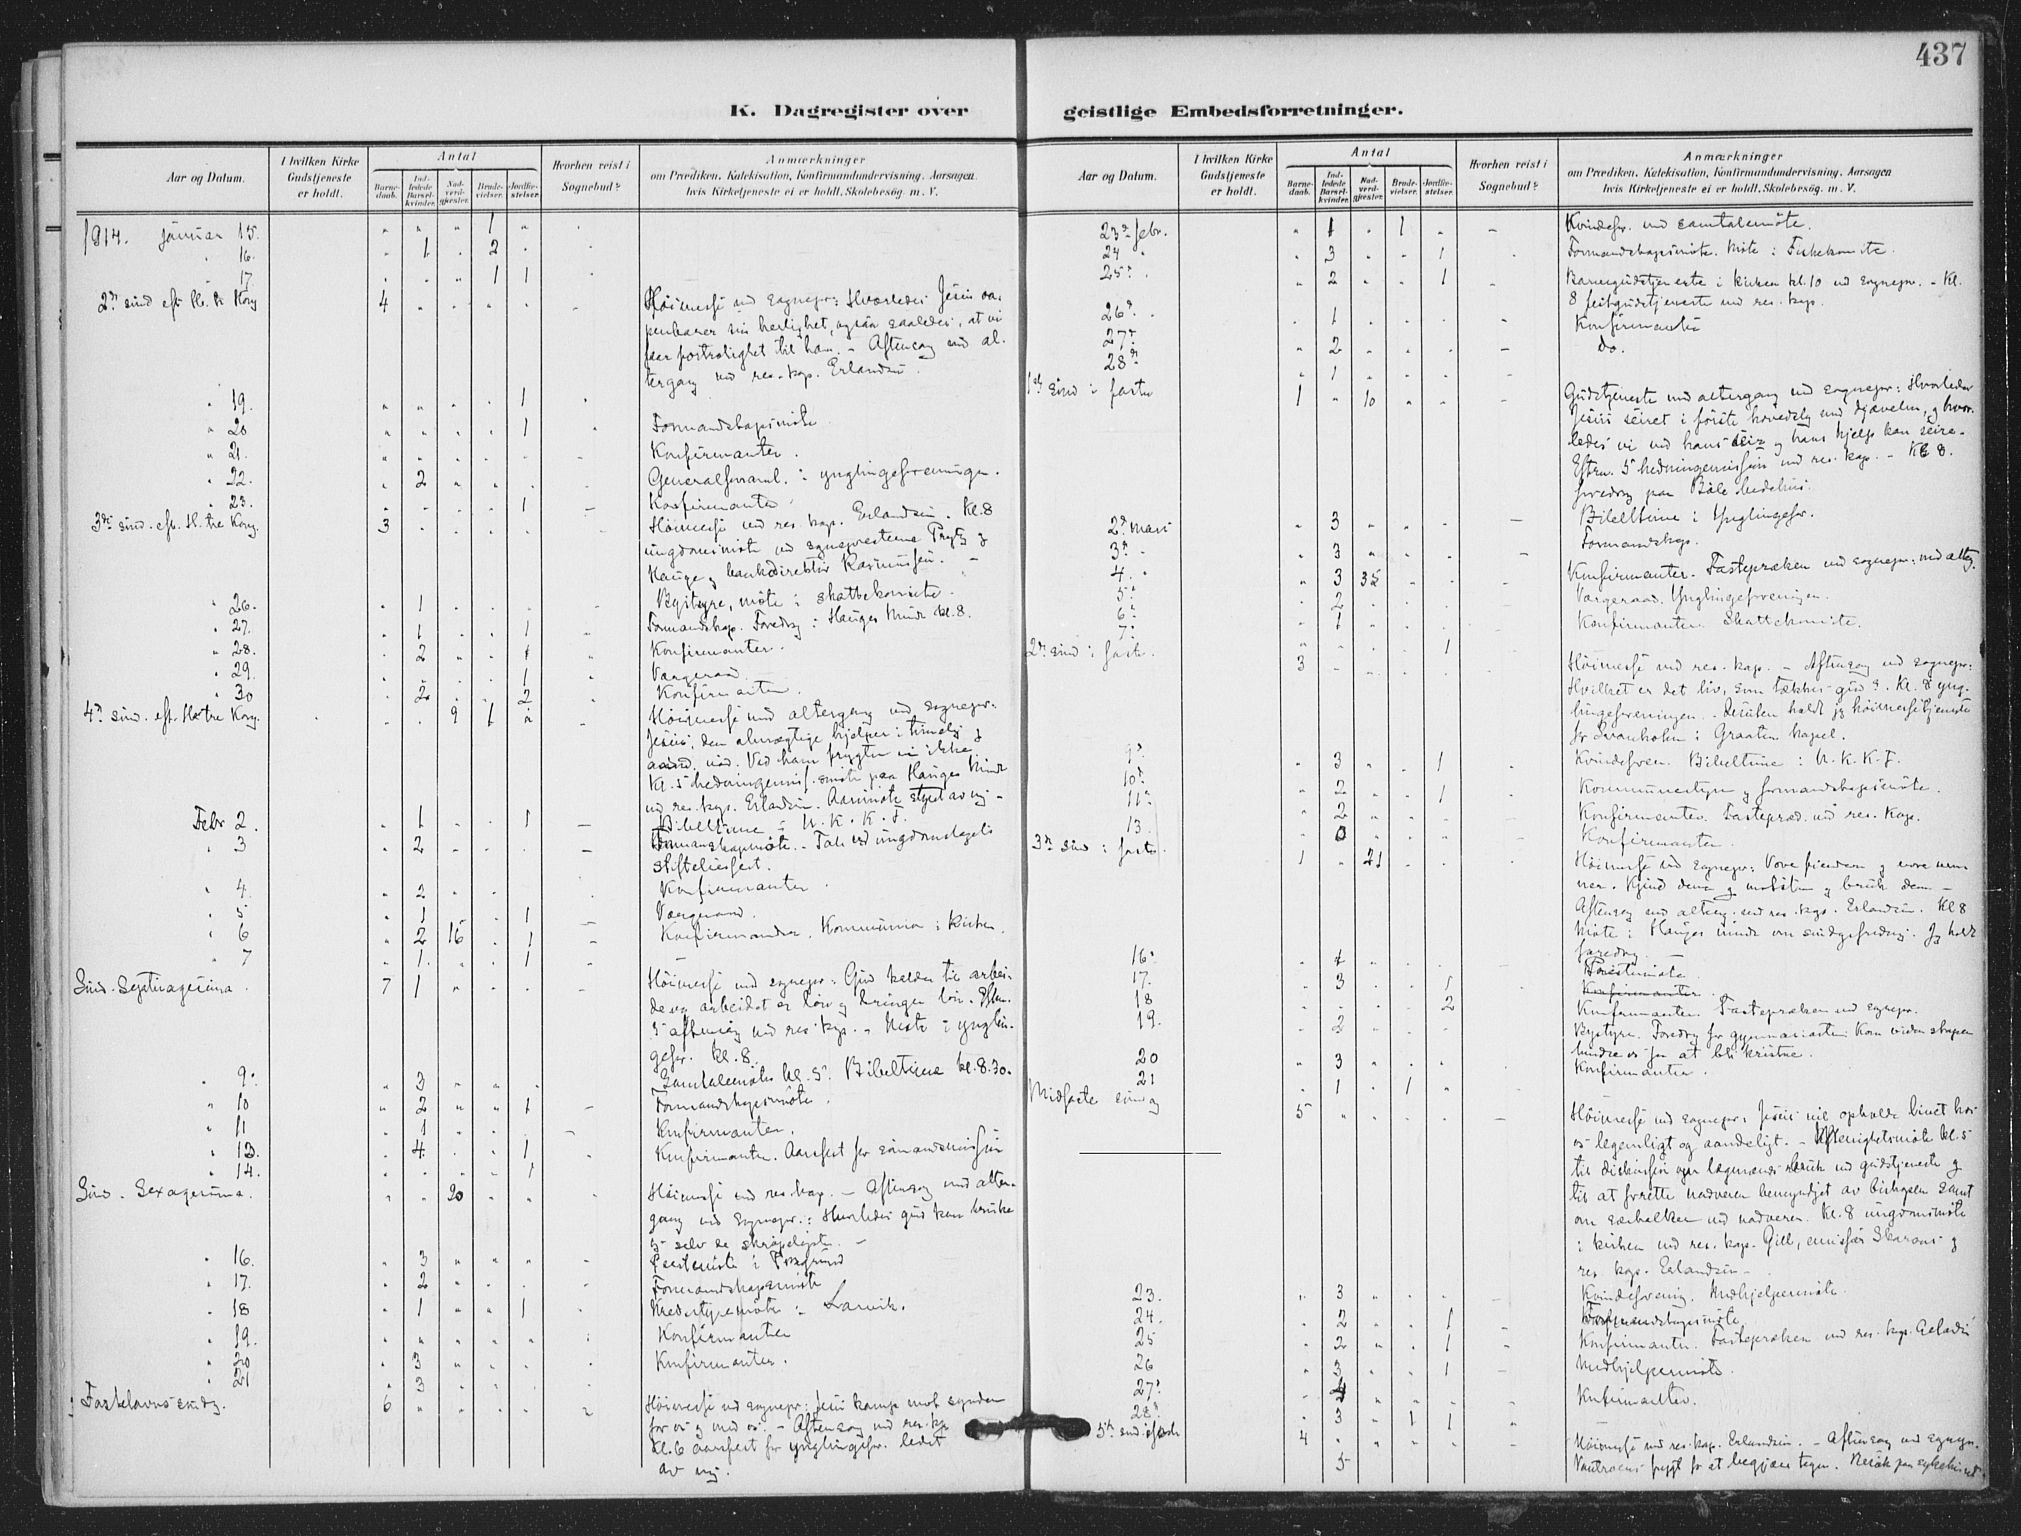 437
K. Dagregister over
geistlige Embedsforretninger.
Aar og Datum.
I hvilken Kirke Gudstjeneste er holdt.
Antal
Barnedaab.
Indledede Barselkvinder.
Nadverdgjæster.
Brudevielser.
Jordfæstelser.
Hvorhen reist i Sognebud?
Anmærkninger
om Prædiken, Katekisation, Konfirmandundervisning, Aarsagen
hvis Kirketjeneste ei er holdt, Skolebesøg, m. V.
1914. januar 15. " " " 1 "
" 16. " 1 " 2 "
" 17. " " " 1 1
2den sønd eft H. 3 Kong 4 " " " " Høimesse ved sognepr: Hvorledes Jesus aa-
penbarer sin herlighet, ogsaa saaledes, at vi
faar fortrolighet til ham. - Aftensang med al-
tergang ved res. kap. Erlandsen.
" 19. " " " " 1
" 20 " " " " 1 Formandskapsmøte
" 21. Konfirmanter.
" 22. " 2 " " " Generalforsaml. i ynglingeforeningen.
" 23. " " " " 1 Konfirmanter
3die sønd. eft. H. tre Kong. 3 Høimesse ved res. kap. Erlandsen. Kl. 8
ungdomsmøte ved sogneprestene Prytz og
Hauge og bankdirektør Rasmussen. -
" 26. " 1 Bystyre, møte i skattekomite.
" 27. " 1 " " 1 Formandskap. Foredrag i Hauges Minde kl. 8.
" 28. " 2 " " 1 Konfirmanter.
" 29. " " " " 1 Vergeraad.
" 30 " 2 " " 2 Konfirmanter.
4de sønd. eft. H. tre Kong. " " 9 1 " Høimesse med altergang ved sognepr:
Jesus, den almægtige hjelper i timelig og
aand. nød. Ved ham frygter vi ikke.
Kl. 5 hedningemis.smøte paa Hauges Minde
ved res. kap. Erlandsen. Aarsmøte styret av mig -
Febr 2. " 1 " " 1 Bibeltime i U. K. K. F.
" 3 " 2 Formandskapsmøte. - Tale ved ungdomslagets
stiftelsesfest.
" 4. " 2 Konfirmanter.
" 5 " 1 " " 1 Vergeraad.
" 6 " 2 16 " 1 Konfirmander. Kommunion i kirken
" 7 " 1 " " 1
Sønd. Septuagesima. 7 1 Høimesse ved sognepr: Gud kalder til arbei-
de og arbeidet er løn og bringer løn. Eftm.
5 aftensang ved res. kap. - Møte i yngling-
gefor. kl. 8.
" 9. " 3 Samtalemøte kl. 5. Bibeltime kl. 8.30.
" 10 " 2 " " 1 Formandskapsmøte.
" 11 " 1 Konfirmanter.
" 13. " 4 " " 1 Konfirmanter. Aarsfest for sømandsmissjon
" 14. " " " " 1
Sønd. Sexagesima. " " 20 " " Høimesse ved res. kap. - Aftensang med alter-
gang ved sognepr.: Hvorledes gud kan bruke
selv de skrøpeligste. -
" 16. " 3 Prestemøte i Porsgrund
" 17. " 2 Formandskapsmøte
" 18 " 1 " " 1 Kredsstyremøte i Larvik.
" 19. Konfirmanter
" 20 " 3 Konfirmanter.
" 21 " 3
Fastelavns søndg. 6 Høimesse ved sognepr: Jesu kamp mot synden
for os og med os. - Aftensang ved res. kap
Kl. 6 aarsfest for ynglingefor. ledet
av mig.
Aar og Datum.
I hvilken Kirke Gudstjeneste er holdt.
Antal
Barnedaab.
Indledede Barselkvinder.
Nadverdgjæster.
Brudevielser.
Jordfæstelser.
Hvorhen reist i Sognebud?
Anmærkninger
om Prædiken, Katekisation, Konfirmandundervisning, Aarsagen
hvis Kirketjeneste ei er holdt, Skolebesøg, m. V.
23de febr. " 1 " 1 " Kvindefor. med samtalemøte.
24 " " 3 " " 1 Formandskapsmøte. Møte i Tukekomite.
25de " " 2 " " 1 Barnegudstjeneste i kirken kl. 10 ved sognepr. - Kl.
8 gudstjeneste ved res. kap.
26de " " 1 Konfirmanter
27de " 2 do.
28de " 1
1ste sønd i faste 1 " 10 " " Gudstjeneste med altergang ved sognepr: Hvorledes
Jesus seiret i første hovedslag med djævelen, og hvor-
ledes vi ved hans seir og hans hjelp kan seire.
Eftm. 5 hedningemission ved res. kap. - Kl 8.
foredrag paa Bøle bedehus.
2den mars " 3 Bibeltime i Ynglingefor.
3de " " 3 Formandskap.
4. " " 3 35 Konfirmanter. Fastepræken ved sognepr. med alterg.
5te " 2 Vergeraad. Ynglingeforeningen.
6te " 1 Konfirmanter. Skattekomite.
7de " " " " 1
2den sønd i faste. 3 Høimesse ved res. kap. - Aftensang ved sognepr:
Hvilket er det liv, som tækkes gud? Kl. 8 yng-
lingeforeningen. Desuten holdt jeg høimessetjeneste
for Svanholm i Graaten kapel.
9de " 3 " " 1 Kvindeforen. Bibeltime i U. K. K. F.
10de " 2 Kommunestyre og formandskapsmøte.
11te " 2 " " 1 Konfirmanter. Fastepræd. ved res. kap.
13. " 0 Konfirmanter.
3die sønd i faste. 1 " 21 Høimesse ved sognepr: Vore fiender og vore ven-
ner. Kjend dem og motstaa og bruk dem -
Aftensang med alterg. ved res. kap. Erlandsen. Kl 8
Møte i Hauges minde om Jeg holdt
foredrag -
16de " 1 Forstermøte
17. " 3 " " 1 Konfirmanter.
18 " " " " 2 Konfirmanter. Fastepræken ved sognepr.
19. " 2 Bystyre. Foredrag for gymnasiasten: Kan videnskapen
hindre os fra at bli kristne.
20 " 3 Konfirmanter.
21 " 1 " 1 "
Midfaste søndag 5 Høimesse ved sognepr: Jesus vil opholde livet hos
os legemligt og aandeligt. - Menighetsmøte kl. 5
til diskusjon over lægmænds bruk ved gudstjeneste og
til at forrette nadveren bemyndiget av biskopen samt
om særkalker ved nadveren. Kl. 8 ungdomsmøte
i kirken ved res. kap. Gill, emissær Skaraas og
res. kap. Erlandsen -
23. " 3 Kvindeforening. Medhjelpermøte.
24. " 2 " " 1 Formandskapsmøte
25 " 2 " " 1 Konfirmanter. Fastepræken ved res. kap.
26 " 3 " " 1 Medhjelpermøte.
27de " Konfirmanter.
28de " 3 " 1 1
5te sønd. i faste 4 Høimesse ved res. kap. Erlandsen. - Aftensang ved sognepr.
5 Vantroens frygt for at begjære tegn. Besøk paa sykehuset